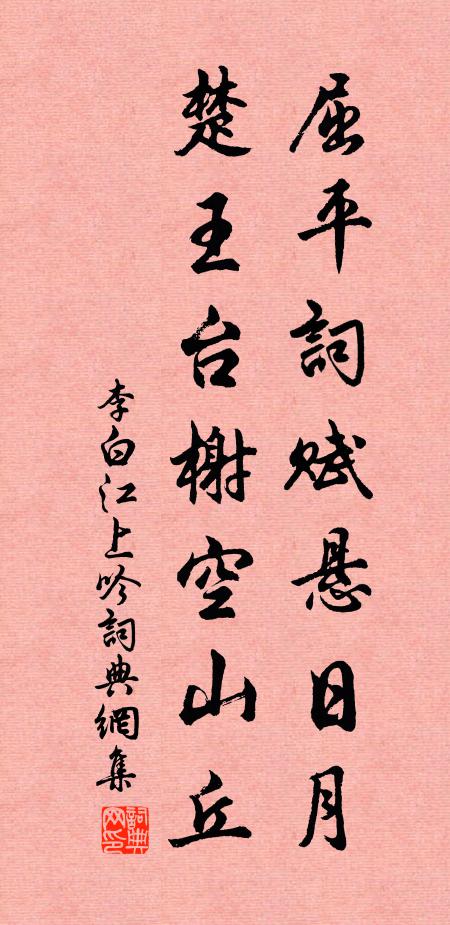 屈平詞赋悬日月
楚王台榭空山丘
李白江上吟詞典網集
詞典网印